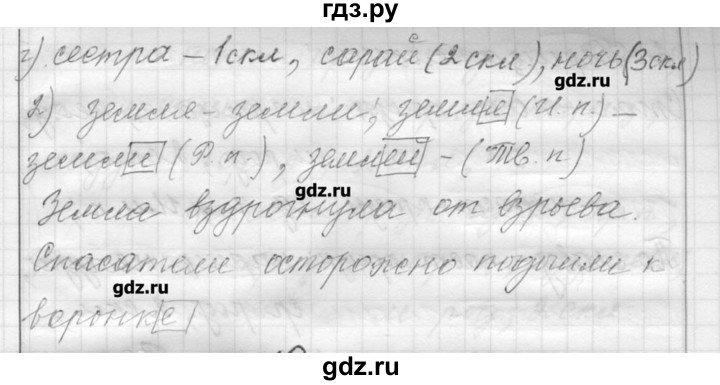 гдз.ру
г) сестра – 1 скл, сарай (2 скл), ночь (3 скл)
gdz.ru
2) земля – земли; земля (И. п.) –
земли (Р. п.), землей – (Тв. п.)
gdz.ru
Земля вздрогнула от взрыва.
Спасатели осторожно подошли к
gdz.ru
воронке
gdz.ru